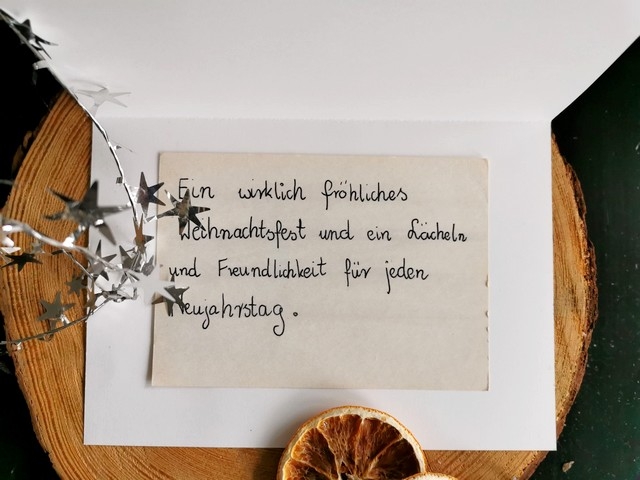 Ein wirklich fröhliches
Weihnachtsfest und ein Lächeln
und Freundlichkeit für jeden
Neujahrstag.